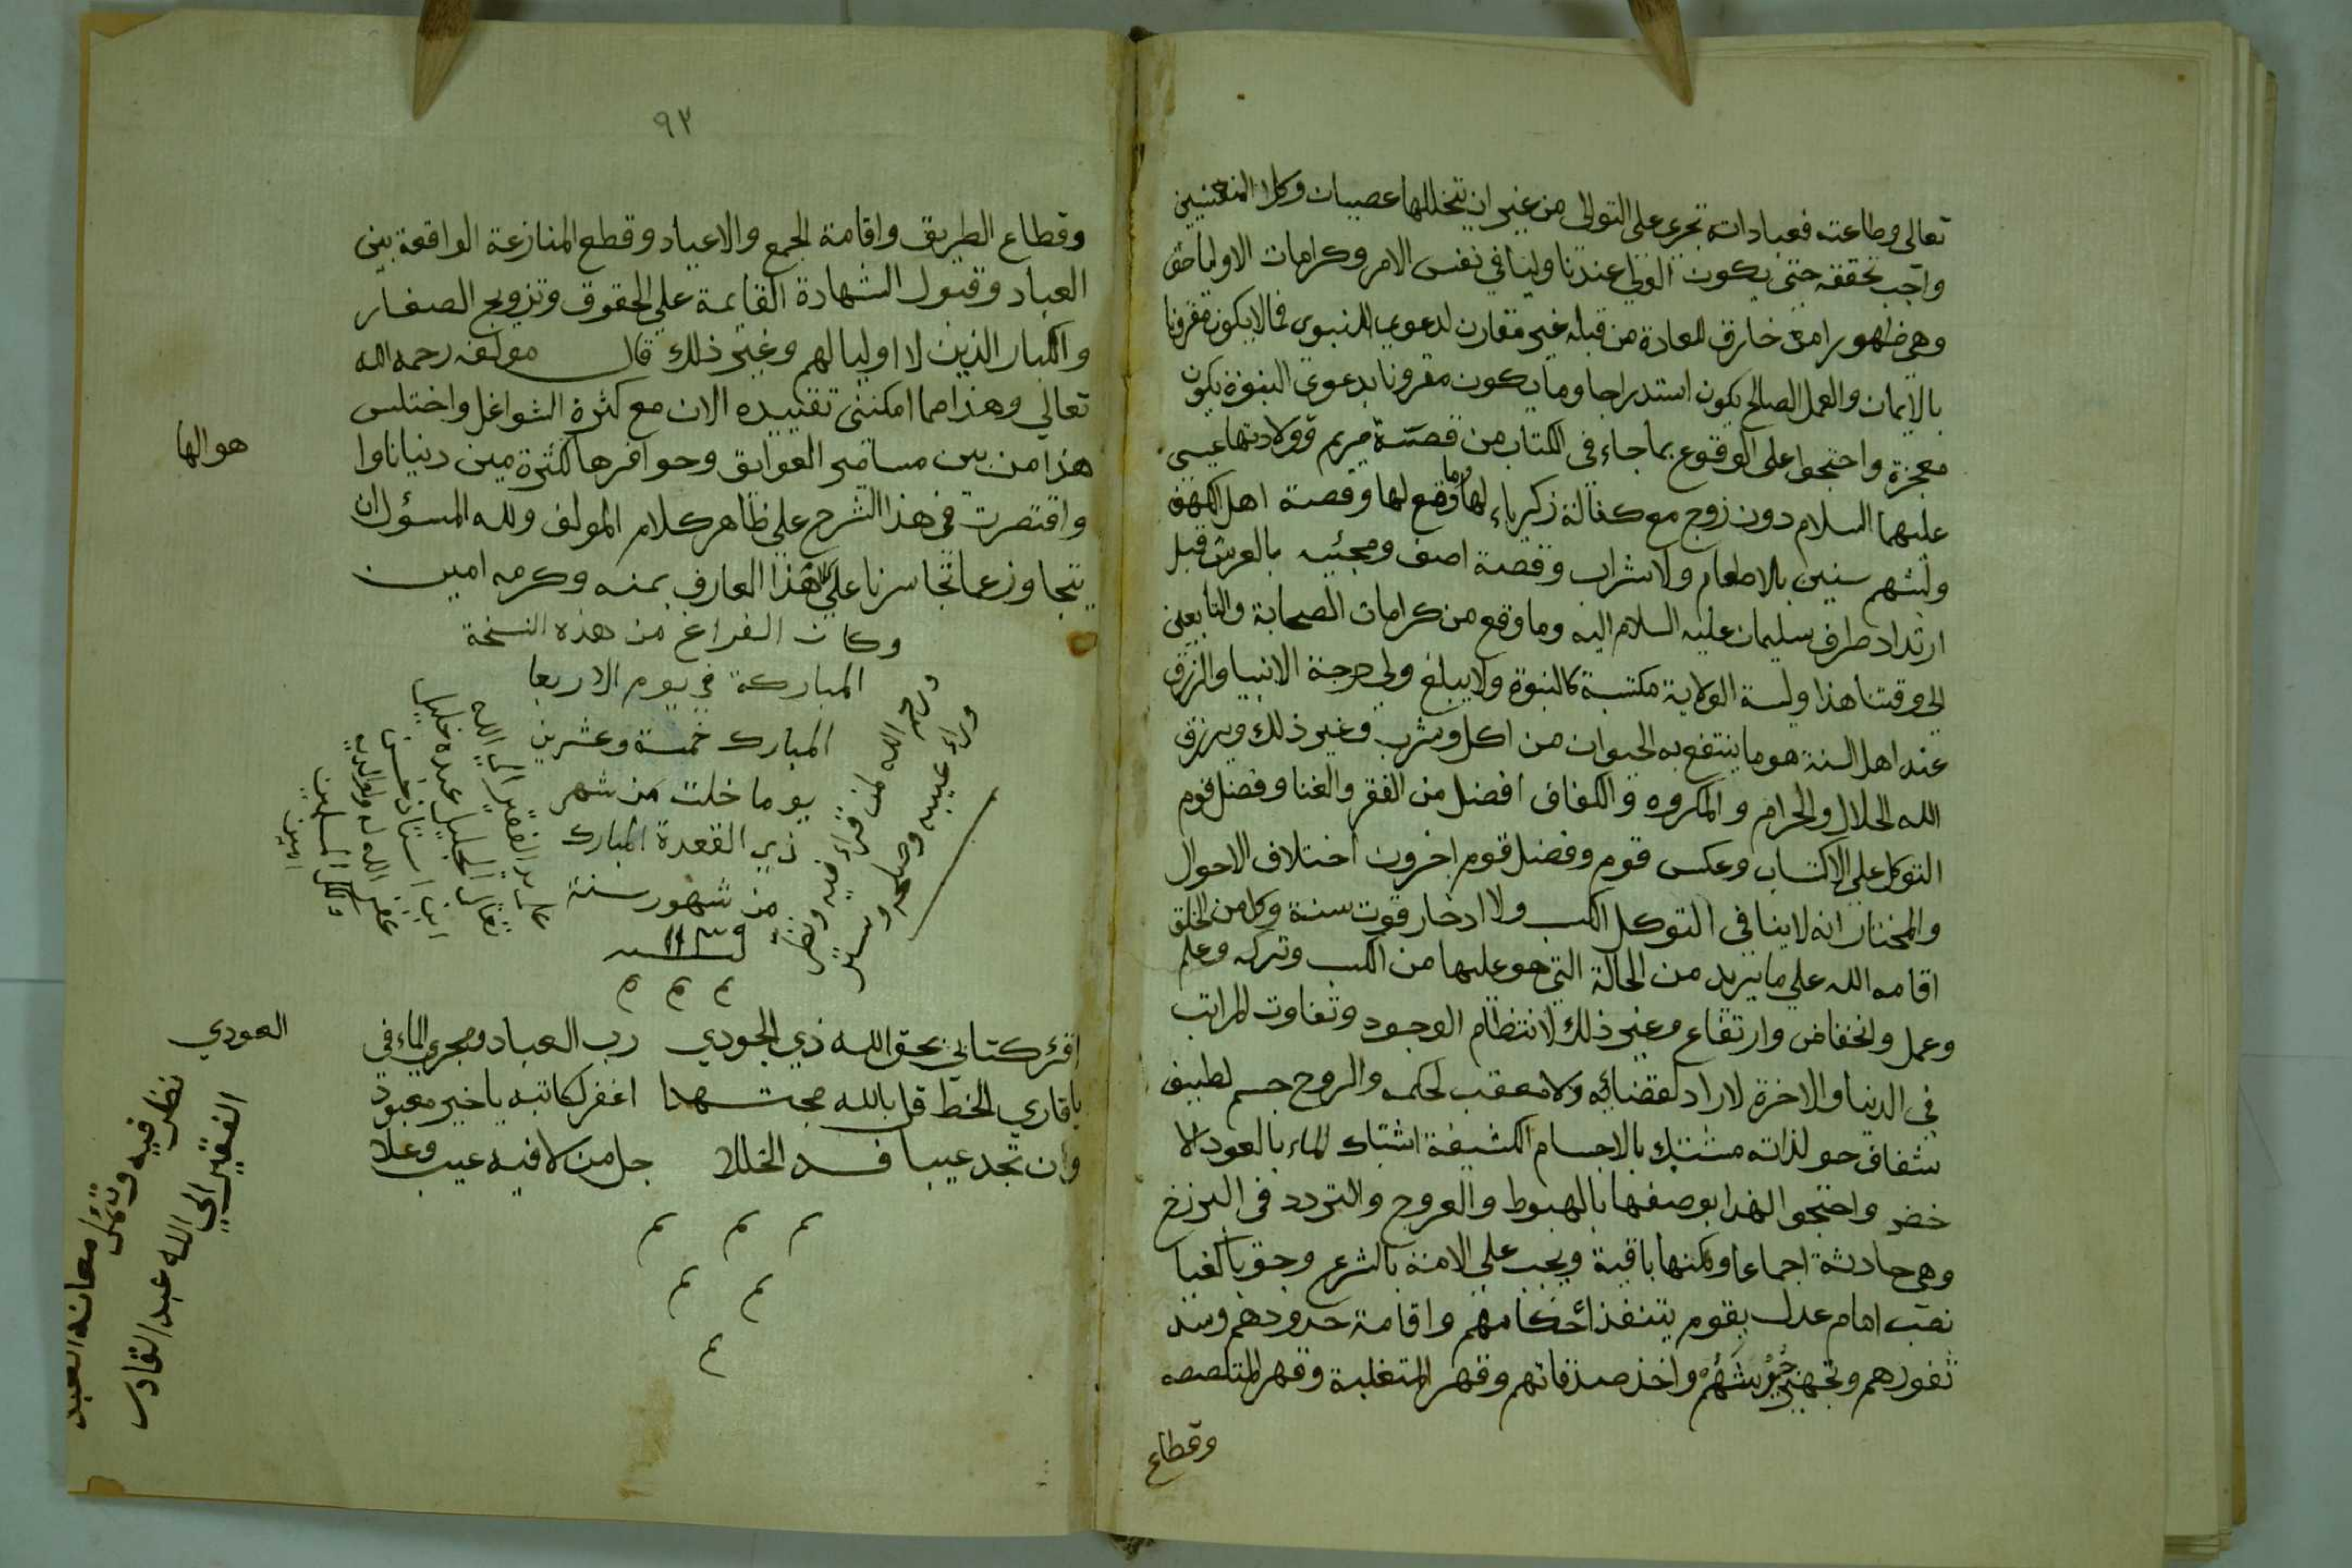 تعالى وطاعته فعباداته تجري على التوالي من غير ان يتخللها عصيان وكلا المعنيين
واجب تحققه حتى يكون الولي عندنا وليا في نفس الامر وكرامات الاوليا حق
وهي ظهور امر خارق للعادة من قبله غير مقارن لدعوي النبوي فما لا يكون مقرونا
بالايمان والعمل الصالح يكون استدراجا وما يكون مقرونا بدعوي النبوة يكون
معجزة واحتجوا على الوقوع بما جاء في الكتاب من قصة مريم وولادتها عيسى
عليهما السلام دون زوج مع كفالة زكرياء لها وما وقع لها وقصة اهل الكهف
ولبثهم سنين بلا طعام ولا شراب وقصة اصف ومجئيه بالعرش قبل
ارتداد طرف سليمان عليه السلام اليه وما وقع من كرامات الصحابة والتابعين
الي وقتنا هذا وليسة الولاية مكتسبة كالنبوة ولا يبلغ ولي درجة الانبيا والرزق
عند اهل السنة هو ما ينتفع به الحيوان من اكل وشرب وغير ذلك ويرزق
الله الحلال والحرام والمكروه والكفاف افضل من الفقر والغنا وفضل قوم
التوكل علي الاكتساب وعكس قوم وفضل قوم اخرون اختلاف الاحوال
والمختار انه لا ينافي التوكل الكسب ولا ادخار قوت سنة وكل من الخلق
اقامه الله علي ما يريد من الحالة التي هو عليها من الكسب وتركه وعلم
وعمل وانخفاض وارتفاع وغير ذلك لانتظام الوجود وتفاوت المراتب
في الدنيا والاخرة لا راد لقضائه ولا معقب لحكمه والروح جسم لطيف
شفاف حي لذاته مشتبك بالاجسام الكثيفة اشتباك الماء بالعود الا
خضر واحتجوا لهذا بوصفها بالهبوط والعروج والتردد في البرزخ
وهي حادثة اجماعا ولكنها باقية ويجب علي الامة بالشرع وجوبا كفيا
نصب امام عدل يقوم بتنفذ احكامهم واقامة حدودهم وسد
ثغورهم وتجهيز جيوشهم واخذ صدقاتهم وقهر المتغلبة وقهر المتلصصه
وقطاع
٩٣
وقطاع الطريق واقامة الجمع والاعياد وقطع المنازعة الواقعة بين
العباد وقبول الشهادة القائمة علي الحقوق وتزويج الصغار
والكبار الذين لا اوليا لهم وغير ذلك قال مولفه رحمه الله
تعالي وهذا مما امكنني تقييده الان مع كثرة الشواغل واختلس
هذا من بين مسامير العوايق وحوافرها لكثرة مين دنيانا وا
هوالها
واقتصرت في هذا الشرح علي ظاهر كلام المولف ولله المسؤل ان
يتجاوز عما تجاسرنا علي هذا العارف بمنه وكرمه امين
وكان الفراغ من هذه النسخة
المباركة في يوم الاربعا
المبارك خمسة وعشرين
يوما خلت من شهر
ذي القعدة المبارك
من شهور سنة
علي يد الفقير الي الله
تعالي الجليل عبده خليل
ابن استاد حسن
غفر الله له ولوالديه
ولكل المسلمين
امين
ورحم الله لمن قراء فيه ونظر
وراء عيبه وصلحه وستر
اقرء كتابي بحق الله ذي الجودي رب العباد ومجري الماء في
العودي
يا قاري الخط قل بالله مجتهدا اغفر لكاتبه يا خير معبود
وان تجد عيبا فسد الخللا جل من لا فيه عيب وعلا
نظر فيه وتأمل معانه العبد
الفقير الي الله عبد القادر